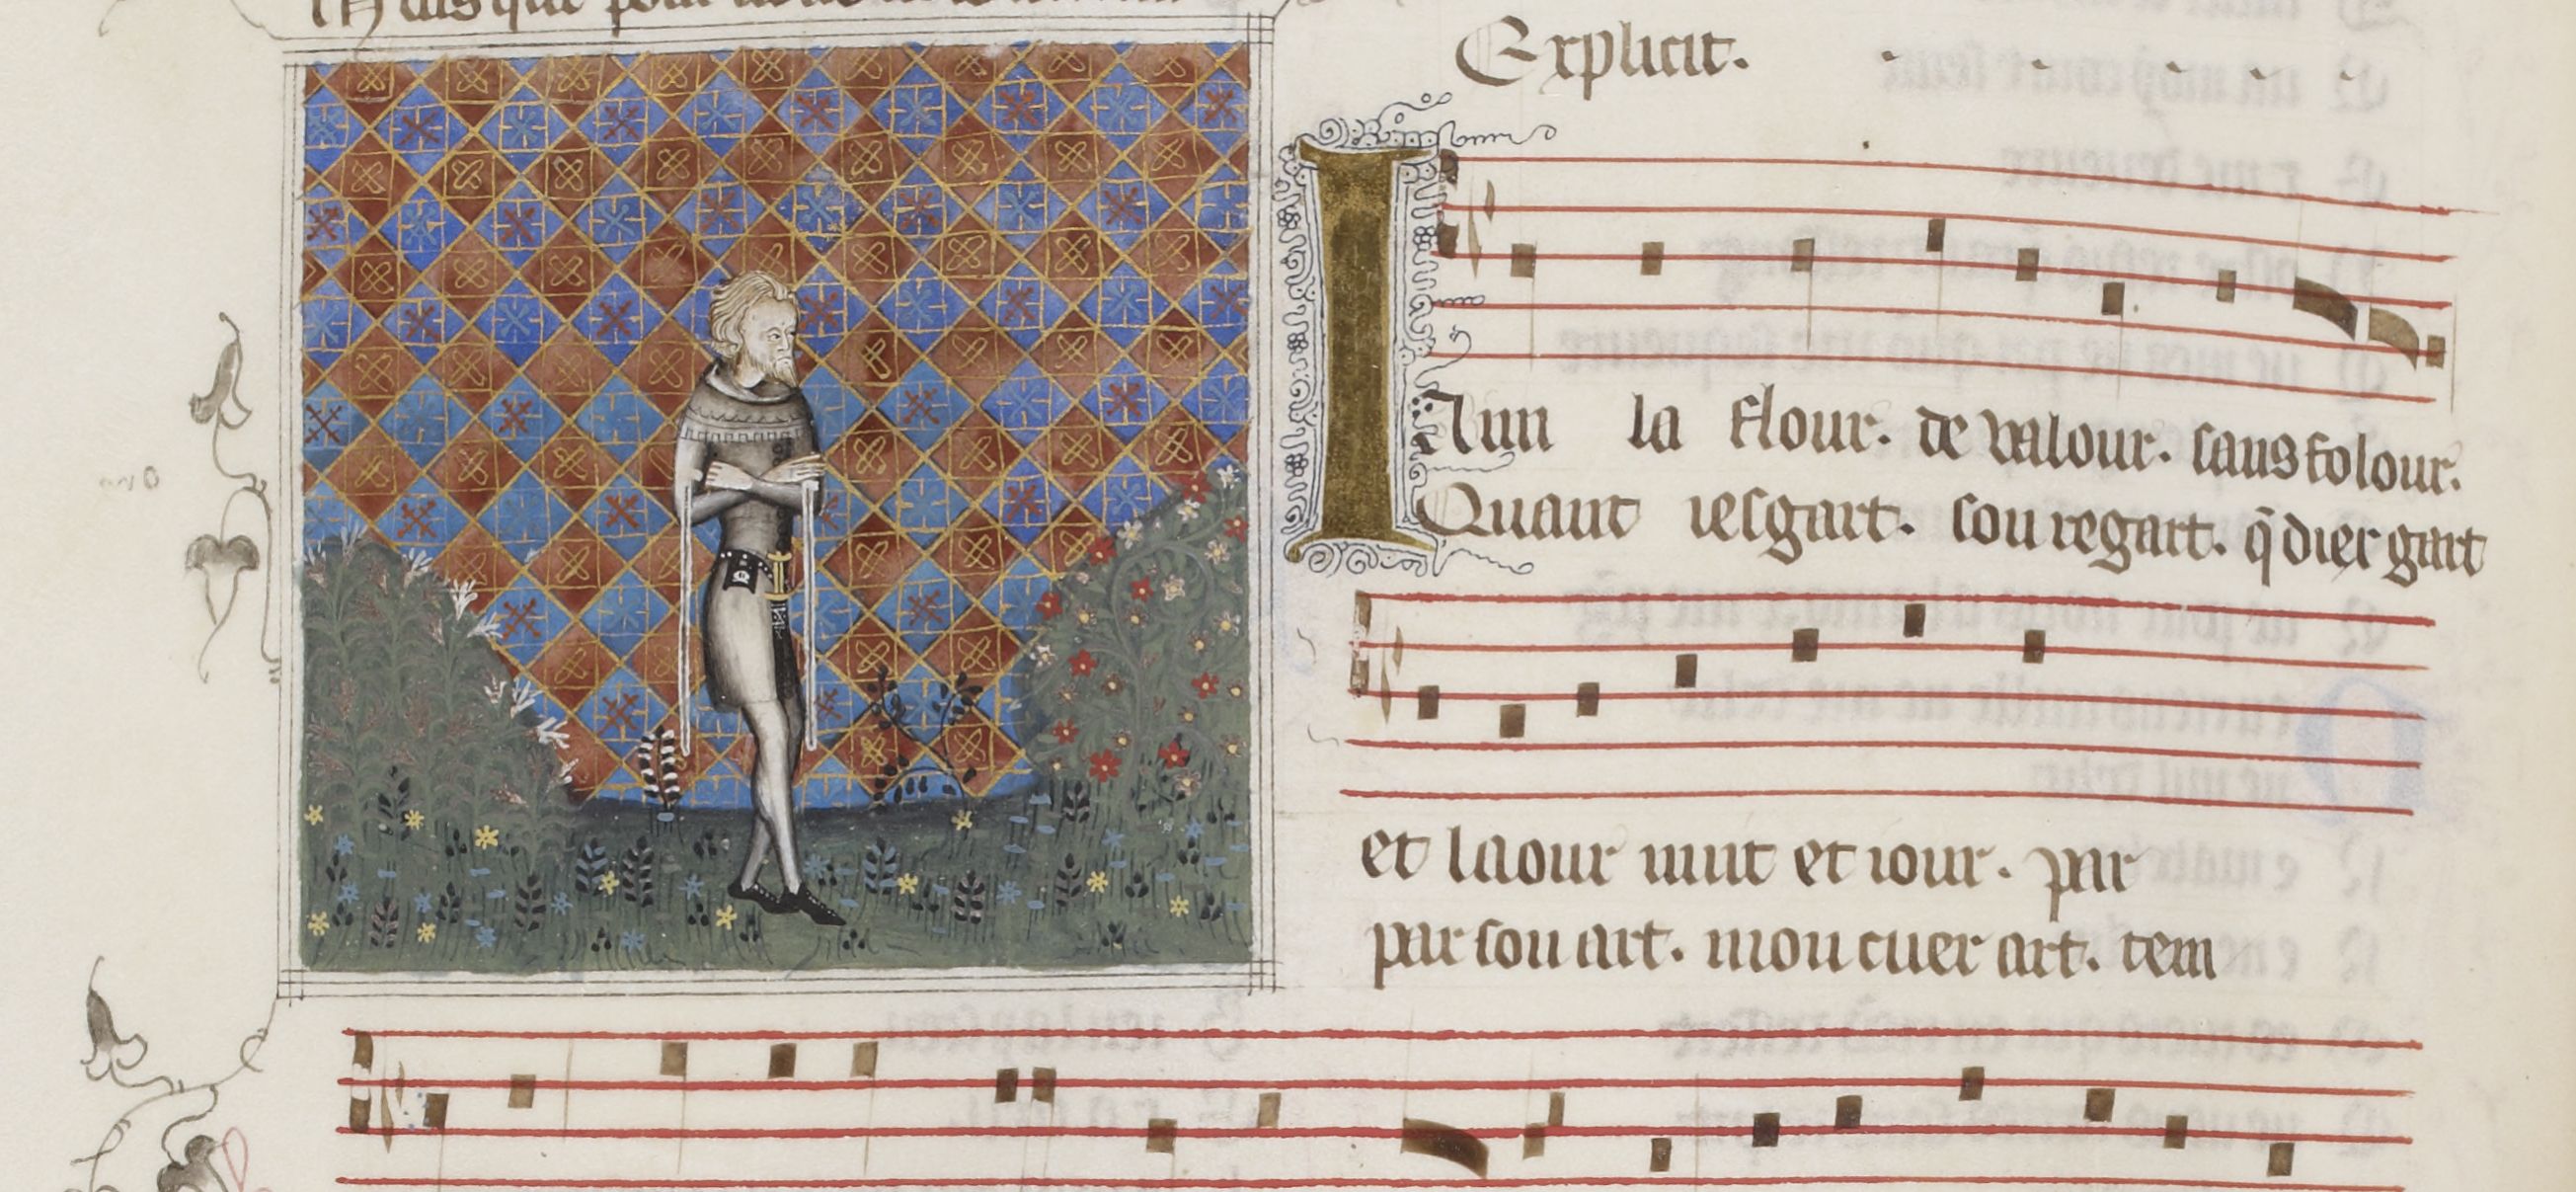 Mais que pour
Explicit.
IAim la flour. de valour. sans folour.
Quant iesgart. son regart. q̃ diex gart
et laour nuit et iour. par
par son art. mon cuer art. tem